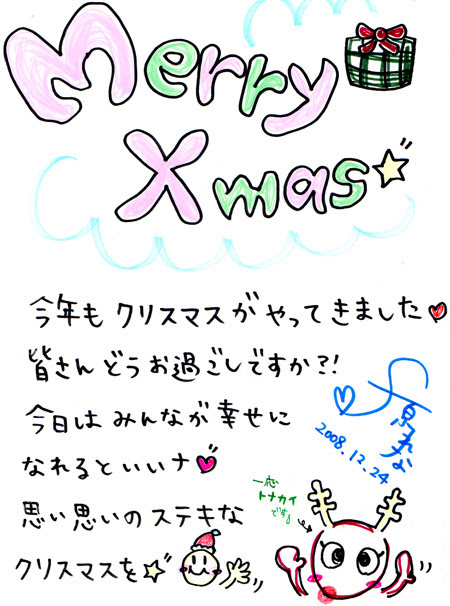 Merry
Xmas
今年もクリスマスがやってきました♥
皆さんどうお過ごしですか?!
今日はみんなが幸せに
なれるといいナ♥
思い思いのステキな
クリスマスを☆
2008.12.24
一応
トナカイ
です。